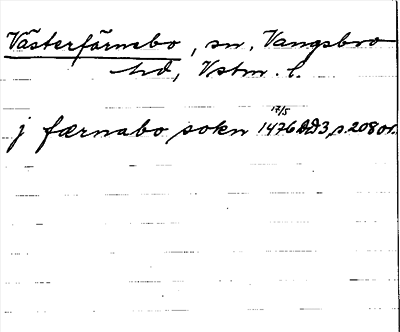 Västerfärnebo, sn, Vangsbro
hd, Vstm. l.
17/5
j færnabo sokn 1476 DD3, s. 208 or.